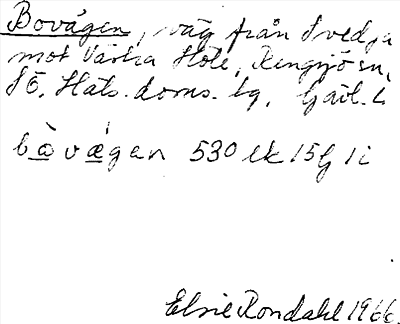 Bovägen, väg från Svedja
mot Västra Höle, Rengsjö sn,
SÖ. Häls. doms. tg, Gävl. L
bo̲væ̲gen 530 ek 15G 1i
Elsie Rondahl 1966.